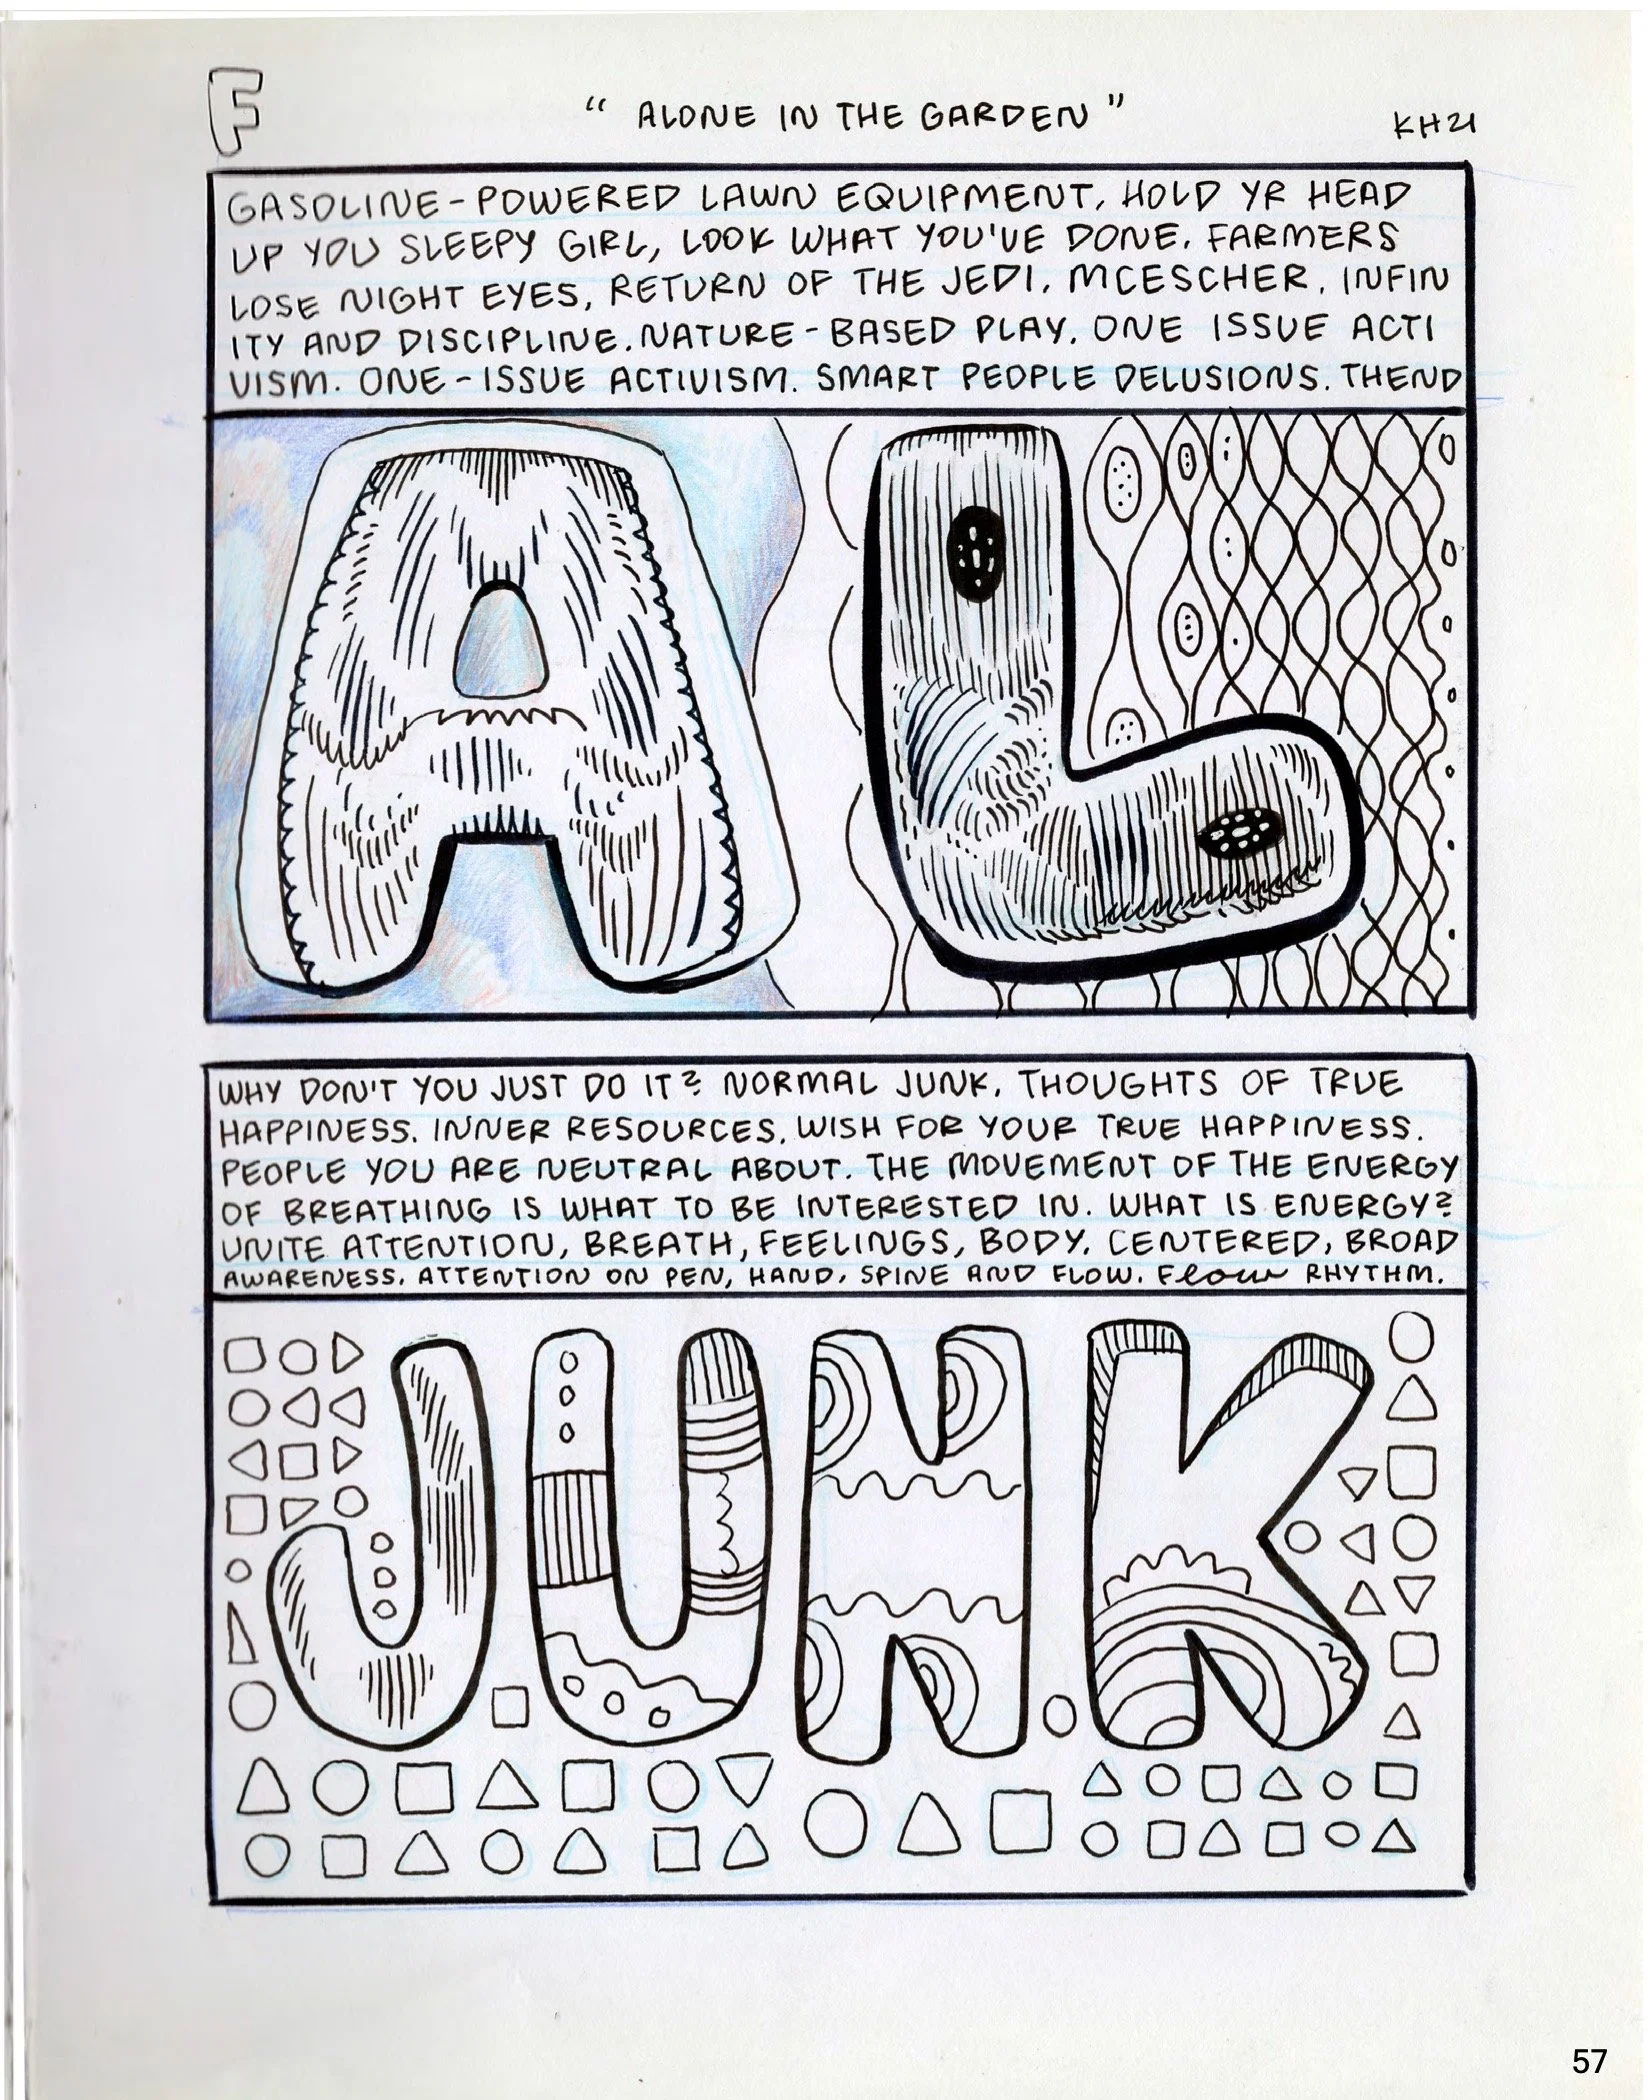 F
" ALONE IN THE GARDEN "
KH21
GASOLINE-POWERED LAWN EQUIPMENT, HOLD YR HEAD
UP YOU SLEEPY GIRL, LOOK WHAT YOU'VE DONE. FARMERS
LOSE NIGHT EYES, RETURN OF THE JEDI. MCESCHER. INFIN
ITY AND DISCIPLINE. NATURE-BASED PLAY. ONE ISSUE ACTI
VISM. ONE-ISSUE ACTIVISM. SMART PEOPLE DELUSIONS. THEND
AL
WHY DON'T YOU JUST DO IT? NORMAL JUNK. THOUGHTS OF TRUE
HAPPINESS. INNER RESOURCES. WISH FOR YOUR TRUE HAPPINESS.
PEOPLE YOU ARE NEUTRAL ABOUT. THE MOVEMENT OF THE ENERGY
OF BREATHING IS WHAT TO BE INTERESTED IN. WHAT IS ENERGY?
UNITE ATTENTION, BREATH, FEELINGS, BODY. CENTERED, BROAD
AWARENESS. ATTENTION ON PEN, HAND, SPINE AND FLOW. Flow RHYTHM.
JUNK
57